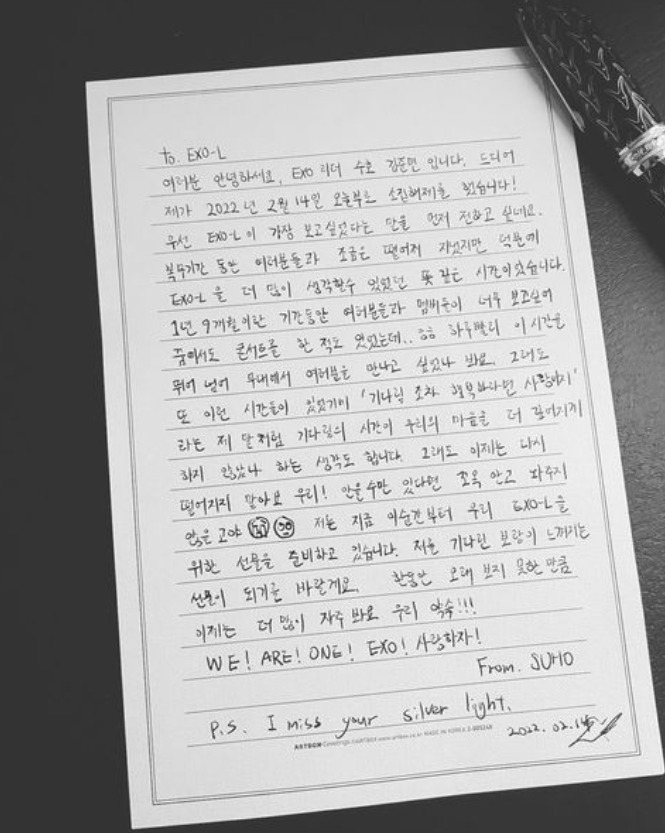 to. EXO-L
여러분 안녕하세요, EXO 리더 수호 김준면 입니다. 드디어
제가 2022년 2월 14일 오늘부로 소집해제를 했습니다!
우선 EXO-L이 가장 보고싶었다는 말을 먼저 전하고 싶네요.
복무기간 동안 여러분들과 조금은 떨어져 지냈지만 덕분에
EXO-L을 더 많이 생각할수 있었던 뜻 깊은 시간이었습니다.
1년 9개월이란 기간동안 여러분들과 멤버들이 너무 보고싶어
꿈에서도 콘서트를 한 적도 있었는데.. ㅎㅎ 하루빨리 이 시간을
뛰어 넘어 무대에서 여러분을 만나고 싶었나 봐요. 그래도
또 이런 시간들이 있었기에 '기다림 조차 행복하다면 사랑이지'
라는 제 말처럼 기다림의 시간이 우리의 마음을 더 깊어지게
하지 않았나 하는 생각도 합니다. 그래도 이제는 다시
떨어지지 말아요 우리! 안을수만 있다면 꼬옥 안고 놔주지
않을 고야 저는 지금 이순간부터 우리 EXO-L을
위한 선물을 준비하고 있습니다. 저를 기다린 보람이 느껴지는
선물이 되기를 바랄게요. 한동안 오래 보지 못한 만큼
이제는 더 많이 자주 봐요 우리 약속!!!
WE! ARE! ONE! EXO! 사랑하자!
From. SUHO
P.S. I miss your silver light.
2022. 02. 14
ARTBOX Greetings ©ARTBOX www.artbox.co.kr MADE IN KOREA